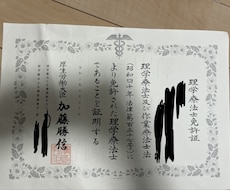 理学療法士免許証
理学療法士及び作業療法士法
(昭和四十年法律第百三十七号)に
より免許された理学療法士
であることを証明する
厚生労働大臣 加藤勝信